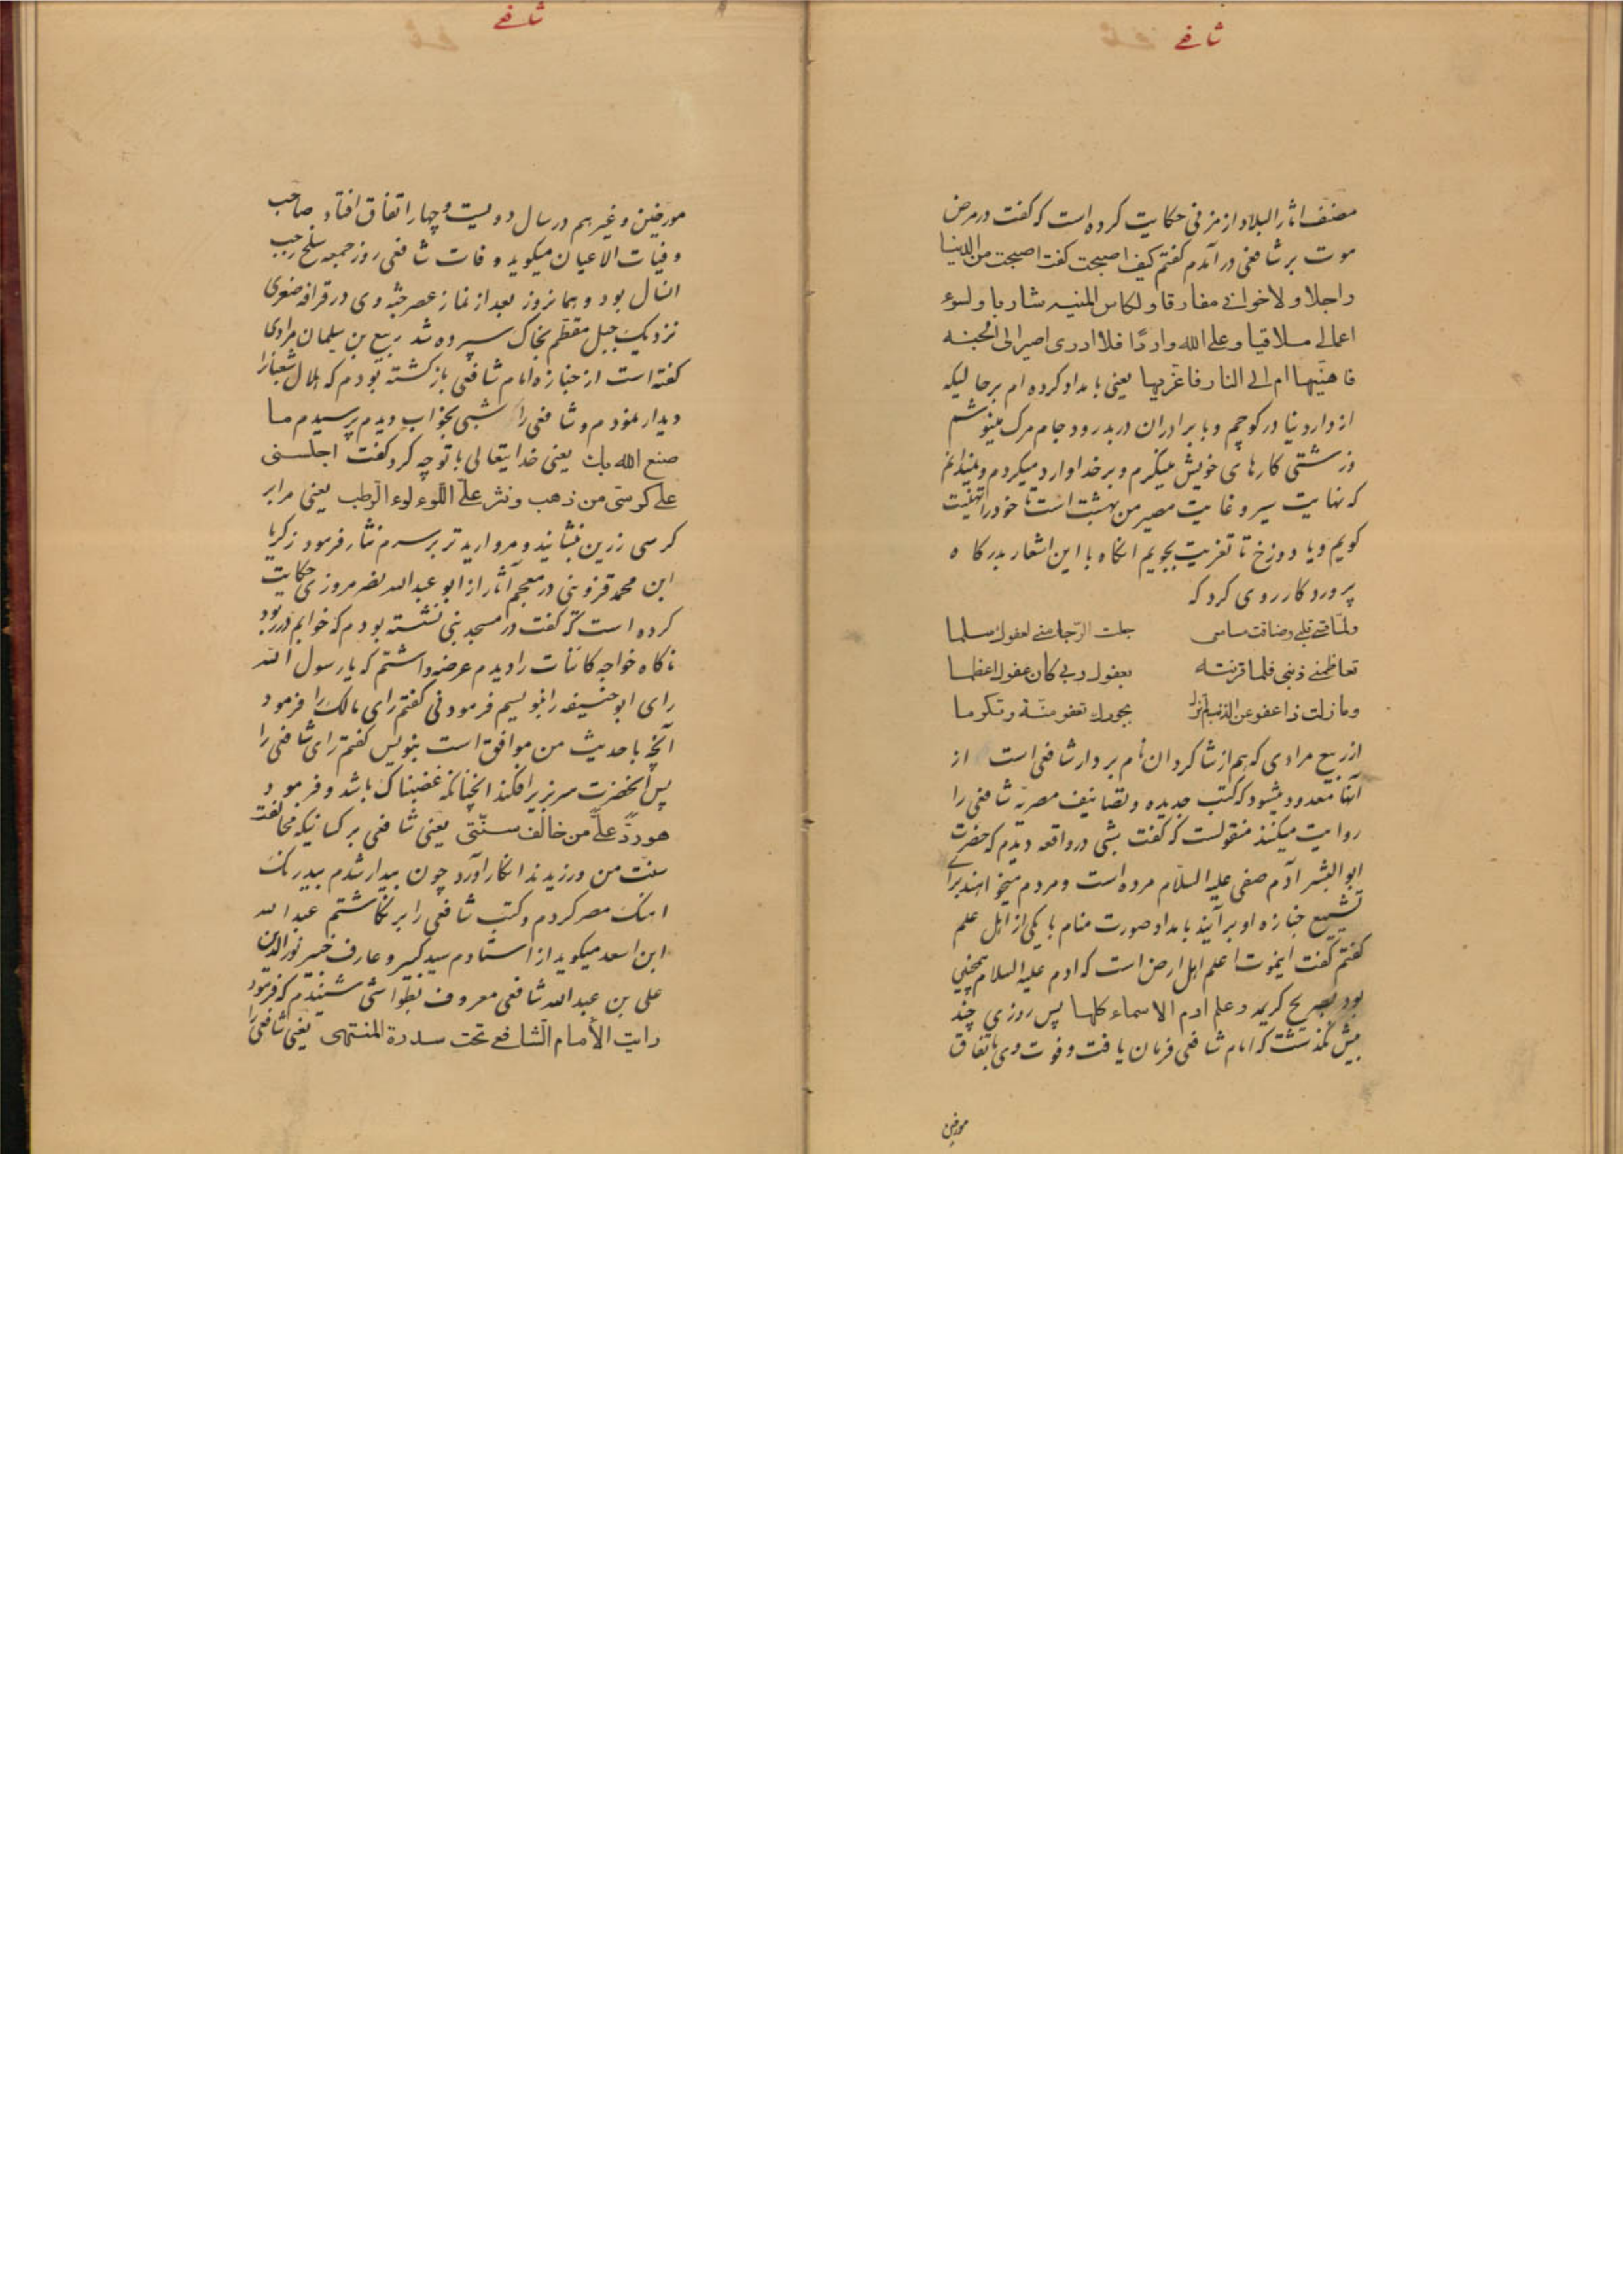 شافعی
مصنف اثار البلاد از مزنی حکایت کرده است که گفت در مرض
موت بر شافعی در آمدم گفتم کیف اصبحت گفت اصبحت من الدنیا
راحلا و لاخوانی مفارقا و لکاس المنیه شاربا و لسوء
اعمالی ملاقیا و علی الله واردًا فلا ادری اصیر الی الجنه
فاهنّیها ام الی النار فاعزّیها یعنی بامداد کرده ام بر حالیکه
از دار دنیا در کوچم و با برادران در بدرود جام مرک مینوشم
و زشتی کارهای خویش مینکرم و بر خدا وارد میکردم و نمیدانم
که نهایت سیر و غایت مصیر من بهشت است تا خود را تهنیت
کویم و یا دوزخ تا تعزیت بجویم انکاه با این اشعار بدرکاه
پروردکار روی کرد که
ولمّا قسی قلبی و ضاقت مسامی جلت الرّجا منی لعفوک سلما
تعاظمنی ذنبی فلما قرنته بعفوک ربی کان عفوک اعظما
وما زلت ذا عفو عن الذنب لم تزل بجودک تعفو منّة و تکرما
از ربیع مرادی که هم از شاکردان نام بردار شافعی است از
آنها معدود میشود که کتب جدیده و تصانیف مصریّه شافعی را
روایت میکنند منقولست که گفت شبی در واقعه دیدم که حضرت
ابوالبشر آدم صفی علیه السلام مرده است و مردم میخواهند برای
تشییع جنازه او بر آیند بامداد صورت منام با یکی از اهل علم
گفتم گفت ایموت اعلم اهل ارض است که ادم علیه السلام همچنین
بود بصریح کریمه و علم ادم الاسماء کلها پس روزی چند
بیش نکذشت که امام شافعی فرمان یافت و فوت وی باتفاق
مورخین
شافعی
مورخین و غیرهم در سال دویست و چهار اتفاق افتاد صاحب
وفیات الاعیان میکوید وفات شافعی روز جمعه سلخ رجب
انسال بود و همانروز بعد از نماز عصر جثه وی در قرافه صغری
نزدیک جبل مقطم بخاک سپرده شد ربیع بن سلیمان مرادی
کفته است از جنازه امام شافعی باز کشته بودم که هلال شعبانرا
دیدار نمودم و شافعی را شبی بخواب دیدم پرسیدم ما
صنع الله بک یعنی خدایتعالی با تو چه کرد گفت اجلسنی
علی کرسی من ذهب و نثر علیّ اللّوءلوء الرّطب یعنی مرا بر
کرسی زرین بنشانید و مروارید تر بر سرم نثار فرمود زکریا
ابن محمد قزوینی در معجم آثار از ابو عبدالله نصر مروزی حکایت
کرده است که گفت در مسجد نبی نشسته بودم که خوابم در ربود
ناکاه خواجه کائنات را دیدم عرضه داشتم که یا رسول الله
رای ابوحنیفه را بنویسم فرمود نی کفتم رای مالک را فرمود
آنچه با حدیث من موافق است بنویس کفتم رای شافعی را
پس آنحضرت سر بزیر افکند انچنانکه غضبناک باشد و فرمود
هو ردٌّ علی من خالف سنّتی یعنی شافعی بر کسانیکه مخالفت
سنت من ورزیدند انکار آورد چون بیدار شدم بیدرنک
اهنک مصر کردم و کتب شافعی را بر نکاشتم عبدالله
ابن اسعد میکوید از استادم سید کبیر و عارف خبیر نورالدین
علی بن عبدالله شافعی معروف بطواشی شنیدم که فرمود
رایت الأمام الشافعی تحت سدرة المنتهی یعنی شافعی را